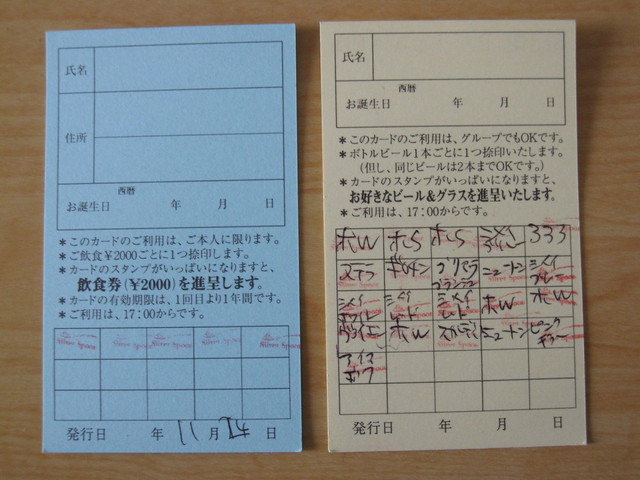 氏名
住所
西暦
お誕生日 年 月 日
＊このカードのご利用は、ご本人に限ります。
＊ご飲食¥2000ごとに1つ捺印します。
＊カードのスタンプがいっぱいになりますと、
飲食券(¥2000)を進呈します。
＊カードの有効期限は、1回目より1年間です。
＊ご利用は、17:00からです。
発行日 年 11 月 14 日
氏名
西暦
お誕生日 年 月 日
＊このカードのご利用は、グループでもOKです。
＊ボトルビール1本ごとに1つ捺印いたします。
(但し、同じビールは2本までOKです。)
＊カードのスタンプがいっぱいになりますと、
お好きなビール&グラスを進呈いたします。
＊ご利用は、17:00からです。
ホW ホS ホS 333
ステラ ニュートン シメイ
ブルー
シメイ
ホワイト シメイ
レッド シメイ
レッド ホW ホW
ホW ニュートン ピンク
発行日 年 月 日